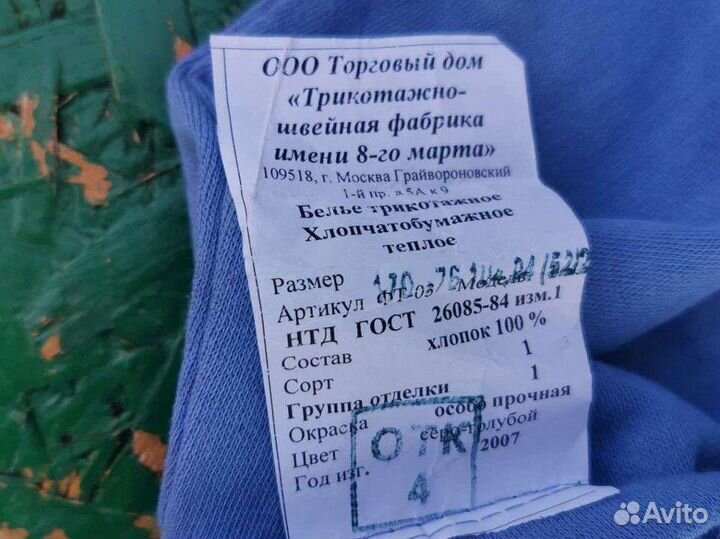 ООО Торговый дом
«Трикотажно-
швейная фабрика
имени 8-го марта»
109518, г. Москва Грайвороновский
1-й пр. д.5А к 9
Белье трикотажное
Хлопчатобумажное
теплое
Размер 170-76
Артикул ФТ-03 Модель
НТД ГОСТ 26085-84 изм.1
Состав хлопок 100 %
Сорт 1
Группа отделки 1
Окраска особо прочная
Цвет серо-голубой
Год изг. 2007
ОТК
4
Avito